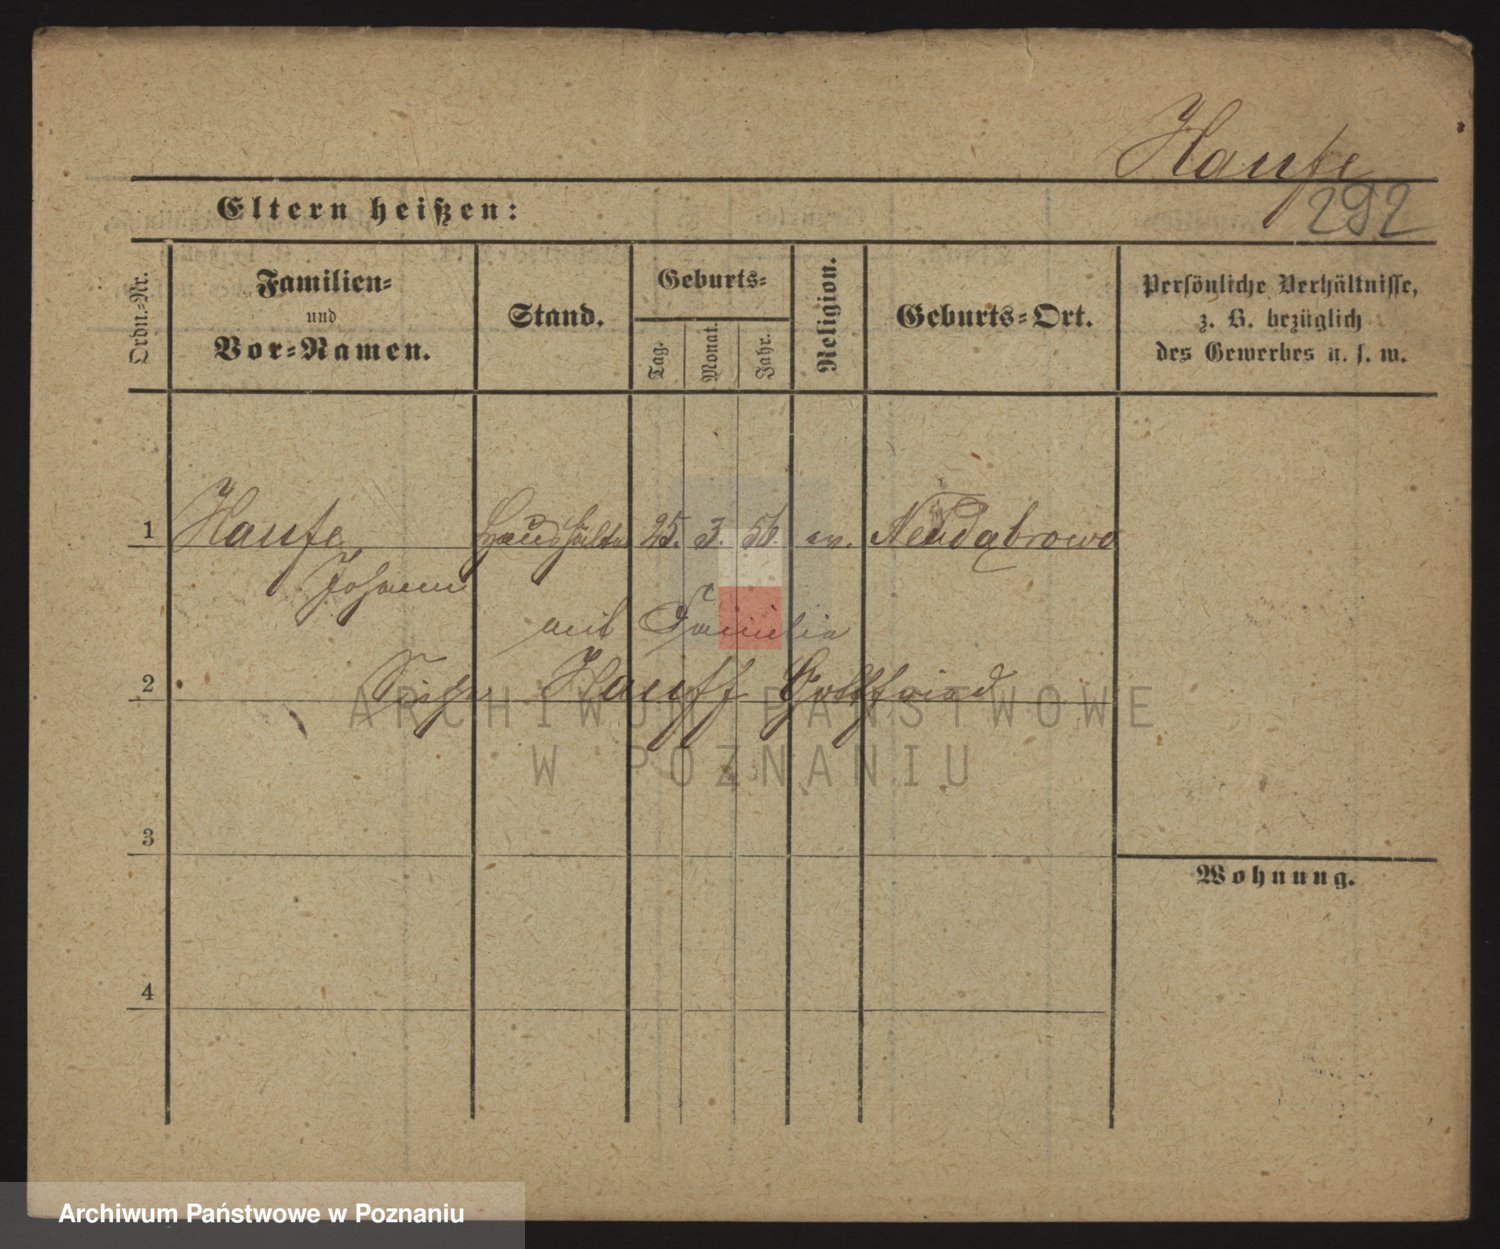 Haufe
292
Eltern heißen:
Ordn.-Nr.
Familien-
und
Vor-Namen.
Stand.
Geburts-
Tag.
Monat.
Jahr.
Religion.
Geburts-Ort.
Persönliche Verhältnisse,
z. B. bezüglich
des Gewerbes u. s. w.
1 Haufe Haushälter 25. 3. 56. ev. Neudabrowo
Johann
mit Familie
2 Siehe Hauff Gottfried
ARCHIWUM PAŃSTWOWE
W POZNANIU
3
Wohnung.
4
Archiwum Państwowe w Poznaniu